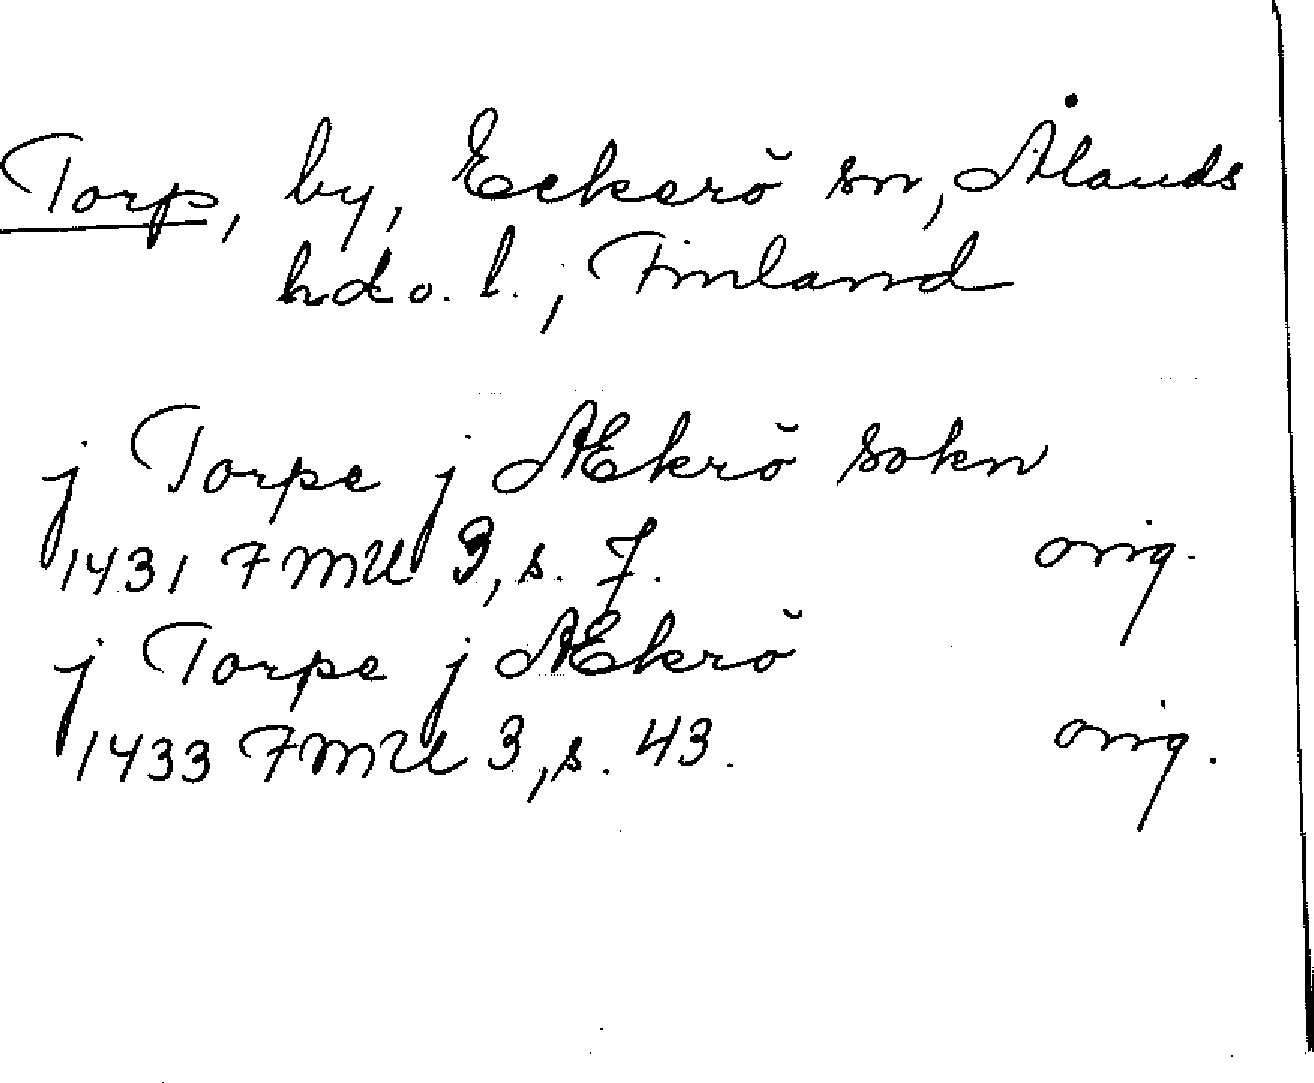 Torp, by, Eckerö sn, Ålands
hd o. l., Finland
j Torpe j Ækrö sokn
1431 FMU 3, s. 7. orig.
j Torpe j Ækrö
1433 FMU 3, s. 43. orig.